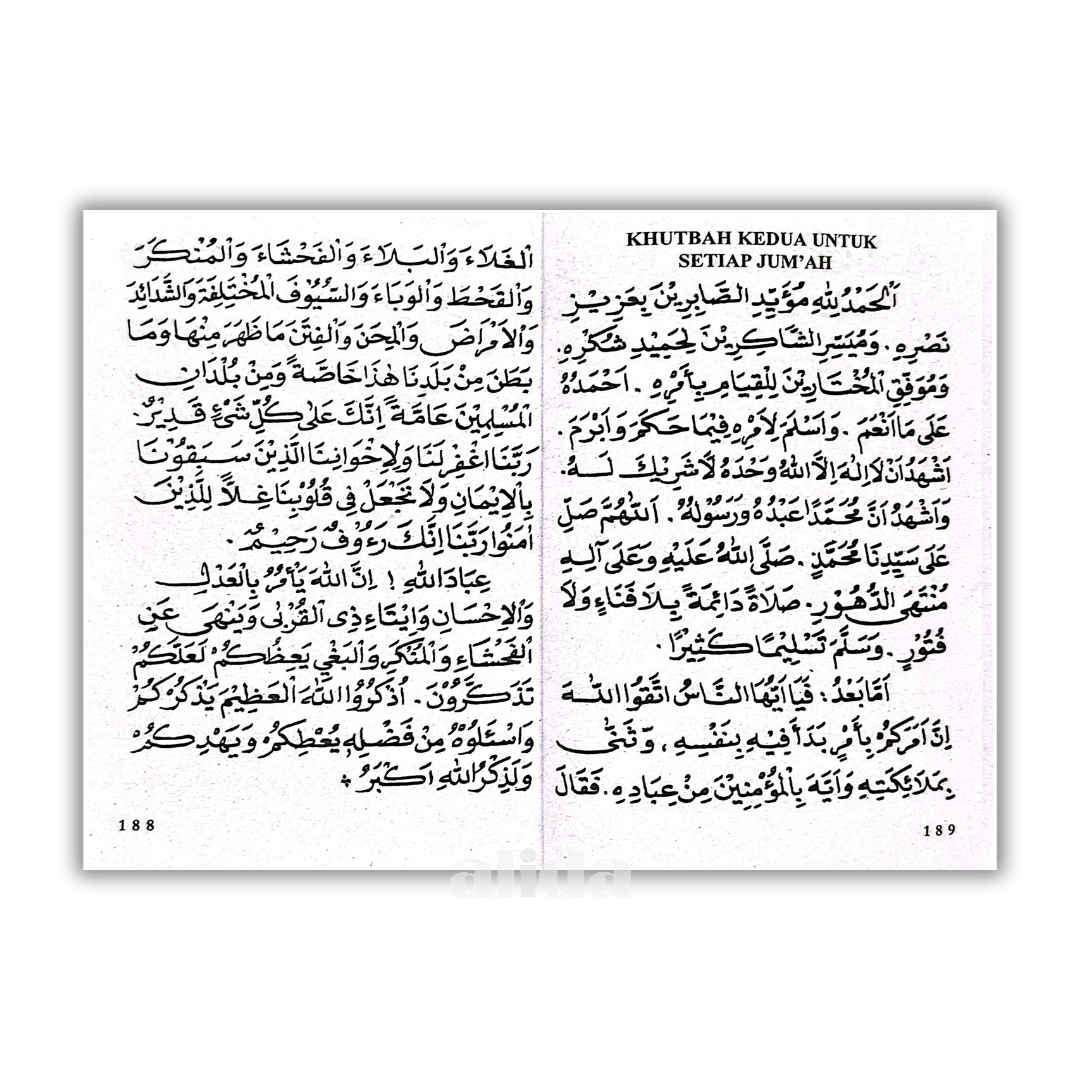 الْغَلَاءَ وَالْبَلَاءَ وَالْفَحْشَاءَ وَالْمُنْكَرَ
وَالْقَحْطَ وَالْوَبَاءَ وَالسُّيُوْفَ الْمُخْتَلِفَةَ وَالشَّدَائِدَ
وَالْاَمْرَاضَ وَالْمِحَنَ وَالْفِتَنَ مَا ظَهَرَ مِنْهَا وَمَا
بَطَنَ مِنْ بَلَدِنَا هٰذَا خَاصَّةً وَمِنْ بُلْدَانِ
الْمُسْلِمِيْنَ عَامَّةً اِنَّكَ عَلٰى كُلِّ شَيْءٍ قَدِيْرٌ.
رَبَّنَا اغْفِرْ لَنَا وَلِاِخْوَانِنَا الَّذِيْنَ سَبَقُوْنَا
بِالْاِيْمَانِ وَلَا تَجْعَلْ فِى قُلُوْبِنَا غِلًّا لِلَّذِيْنَ
اٰمَنُوْا رَبَّنَا اِنَّكَ رَءُوْفٌ رَحِيْمٌ.
عِبَادَ اللهِ ! اِنَّ اللهَ يَأْمُرُ بِالْعَدْلِ
وَالْاِحْسَانِ وَاِيْتَاءِ ذِى الْقُرْبٰى وَيَنْهٰى عَنِ
الْفَحْشَاءِ وَالْمُنْكَرِ وَالْبَغْيِ يَعِظُكُمْ لَعَلَّكُمْ
تَذَكَّرُوْنَ. اُذْكُرُوا اللهَ الْعَظِيْمَ يَذْكُرْكُمْ
وَاسْئَلُوْهُ مِنْ فَضْلِهٖ يُعْطِكُمْ وَيَهْدِكُمْ
وَلَذِكْرُ اللهِ اَكْبَرُ
188
KHUTBAH KEDUA UNTUK
SETIAP JUM'AH
اَلْحَمْدُ لِلّٰهِ مُؤَيِّدِ الصَّابِرِيْنَ بِعَزِيْزِ
نَصْرِهِ. وَمُيَسِّرِ الشَّاكِرِيْنَ لِحَمِيْدِ شُكْرِهِ.
وَمُوَفِّقِ الْمُخْتَارِيْنَ لِلْقِيَامِ بِأَمْرِهِ. اَحْمَدُهُ
عَلٰى مَا اَنْعَمَ. وَاَسْلَمَ لِاَمْرِهِ فِيْمَا حَكَمَ وَاَبْرَمَ.
اَشْهَدُ اَنْ لَا اِلٰهَ اِلَّا اللهُ وَحْدَهُ لَا شَرِيْكَ لَهُ.
وَاَشْهَدُ اَنَّ مُحَمَّدًا عَبْدُهُ وَرَسُوْلُهُ. اَللّٰهُمَّ صَلِّ
عَلٰى سَيِّدِنَا مُحَمَّدٍ. صَلَّى اللهُ عَلَيْهِ وَعَلٰى آلِهِ
مُنْتَهَى الدُّهُوْرِ. صَلَاةً دَائِمَةً بِلَا فَنَاءٍ وَلَا
فُتُوْرٍ. وَسَلَّمَ تَسْلِيْمًا كَثِيْرًا.
اَمَّا بَعْدُ: فَيَا اَيُّهَا النَّاسُ اتَّقُوا اللهَ
اِنَّ اَمَرَكُمْ بِأَمْرٍ بَدَأَ فِيْهِ بِنَفْسِهِ، وَثَنّٰى
بِمَلَائِكَتِهِ وَاَيَّهَ بِالْمُؤْمِنِيْنَ مِنْ عِبَادِهِ. فَقَالَ
189
alida